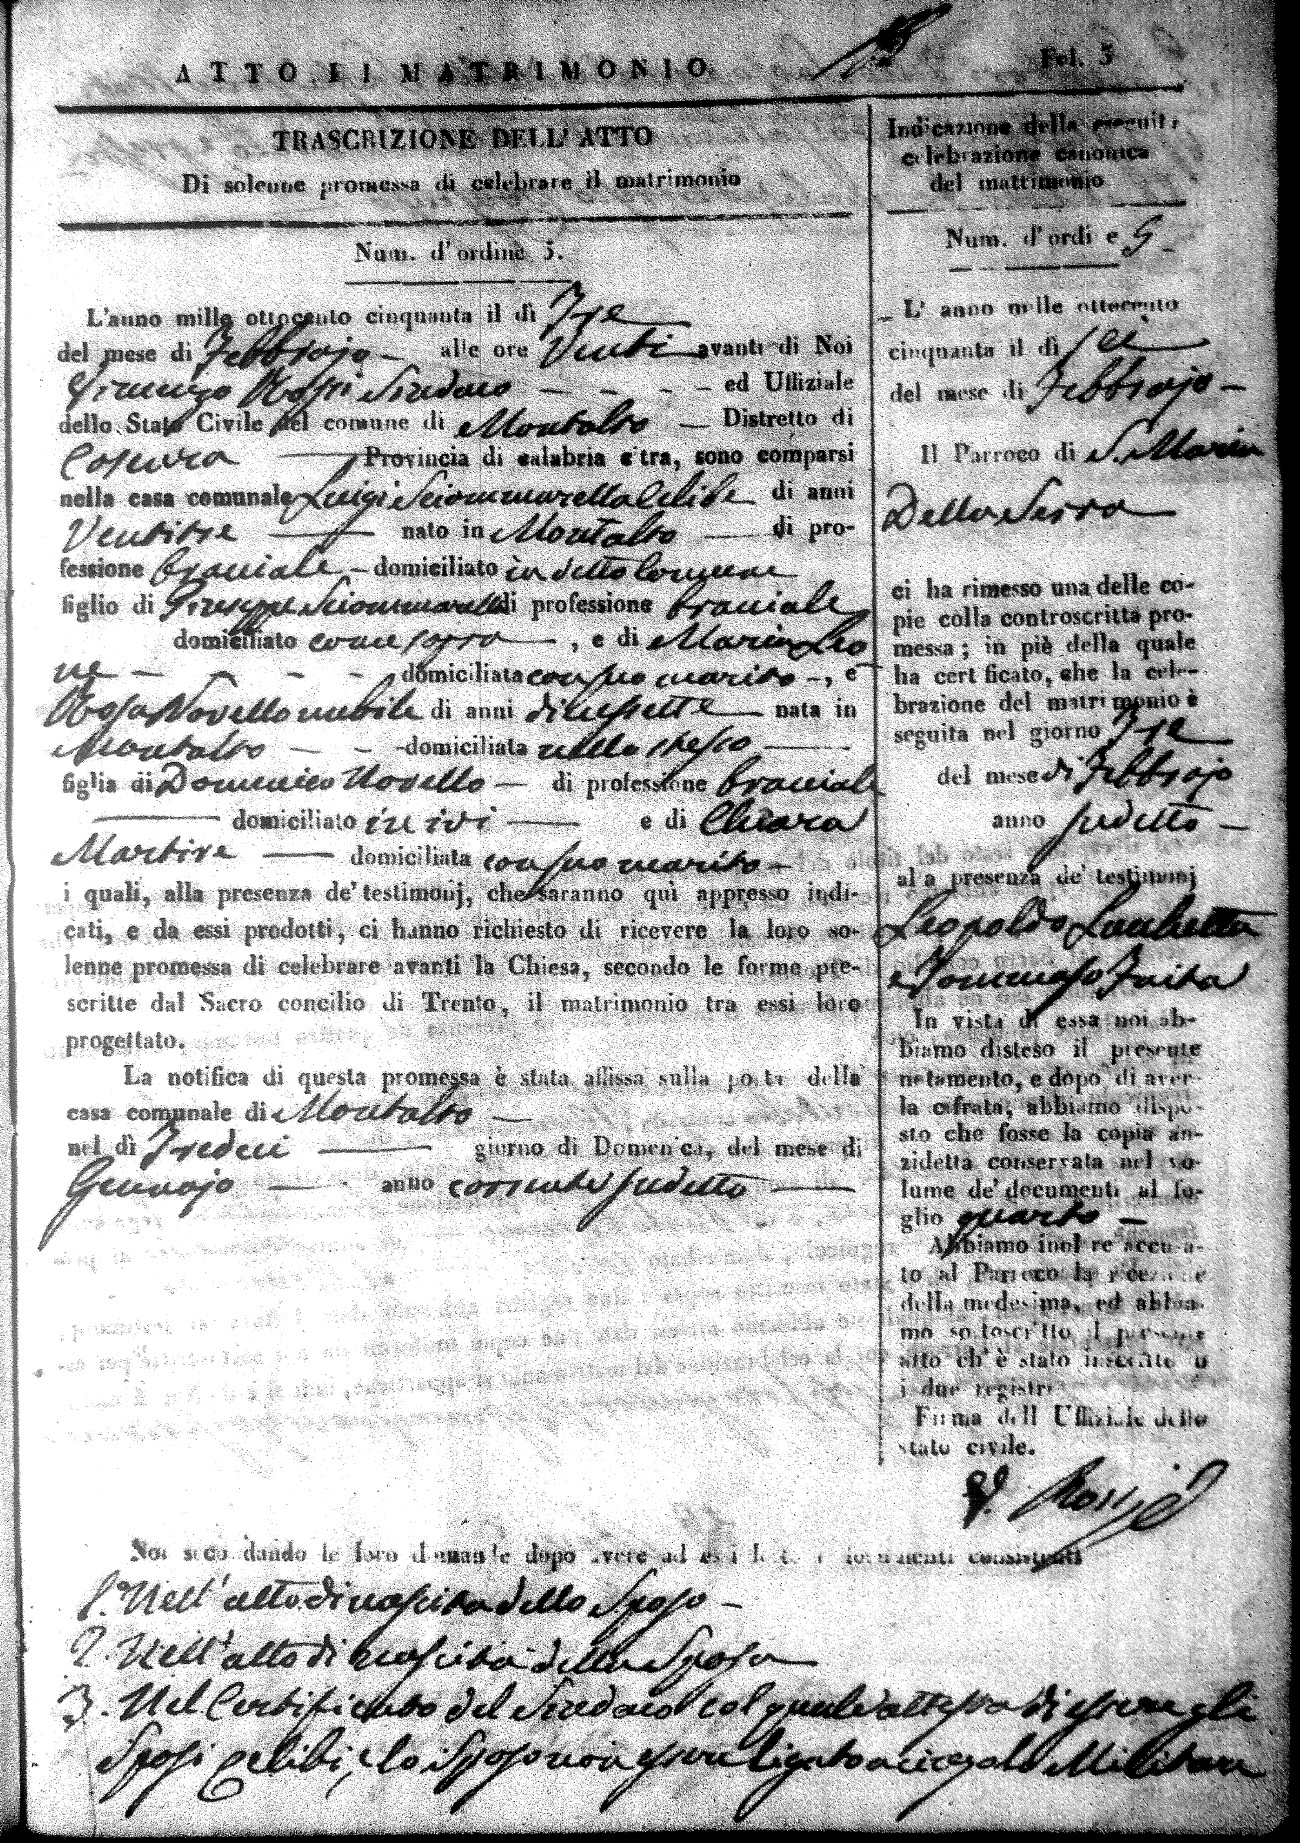 ATTO DI MATRIMONIO
Fol. 5
TRASCRIZIONE DELL'ATTO
Di solenne promessa di celebrare il matrimonio
Num. d'ordine 5.
L'anno mille ottocento cinquanta il dì Tre
del mese di Febbrajo alle ore Venti avanti di Noi
Rossi Sindaco ed Uffiziale
dello Stato Civile del comune di Montalto Distretto di
Cosenza Provincia di calabria citra, sono comparsi
nella casa comunale Luigi Sciommarella celibe di anni
Ventitre nato in Montalto di pro-
fessione bracciale domiciliato in detto Comune
figlio di Giuseppe Sciommarella di professione bracciale
domiciliato come sopra, e di Maria Leo
ne domiciliata con suo marito, e
Rosa Novello nubile di anni diciassette nata in
Montalto domiciliata nello stesso
figlia di Domenico Novello di professione bracciale
domiciliato in ivi e di Chiara
Martire domiciliata con suo marito
i quali, alla presenza de' testimonj, che saranno quì appresso indi-
cati, e da essi prodotti, ci hanno richiesto di ricevere la loro so-
lenne promessa di celebrare avanti la Chiesa, secondo le forme pre-
scritte dal Sacro concilio di Trento, il matrimonio tra essi loro
progettato.
La notifica di questa promessa è stata affissa sulla porta della
casa comunale di Montalto
nel dì Tredici giorno di Domenica, del mese di
Gennajo anno corrente sudetto
Indicazione della seguita
celebrazione canonica
del matrimonio
Num. d'ordi e 5
L' anno mille ottocento
cinquanta il dì sei
del mese di Febbrajo
Il Parroco di S. Maria
Della Serra
ci ha rimesso una delle co-
pie colla controscritta pro-
messa; in piè della quale
ha cert ficato, che la cele-
brazione del matrimonio è
seguita nel giorno Tre
del mese di Febbrajo
anno sudetto
al a presenza de' testimonj
Leopoldo Lucchetta
e Tommaso Faita
In vista di essa noi ab-
biamo disteso il presente
notamento, e dopo di aver-
la cifrata, abbiamo dispo-
sto che fosse la copia an-
zidetta conservata nel vo-
lume de' documenti al fo-
glio quarto
Abbiamo inoltre accusa-
to al Parroco la ricezione
della medesima, ed abbia-
mo sottoscritto il presente
atto ch' è stato inscritto u
i due registri
Firma dell Uffiziale dello
stato civile.
Rossi
Noi secondando le loro dimande dopo avere ad essi letto i documenti consistenti
1. Nell' atto di nascita dello Sposo
2. Nell' atto di nascita della Sposa
3. Nel Certificato del Sindaco col quale attesta di essere gli
Sposi celibi, e lo Sposo non essere ligato a ciegolo Militare